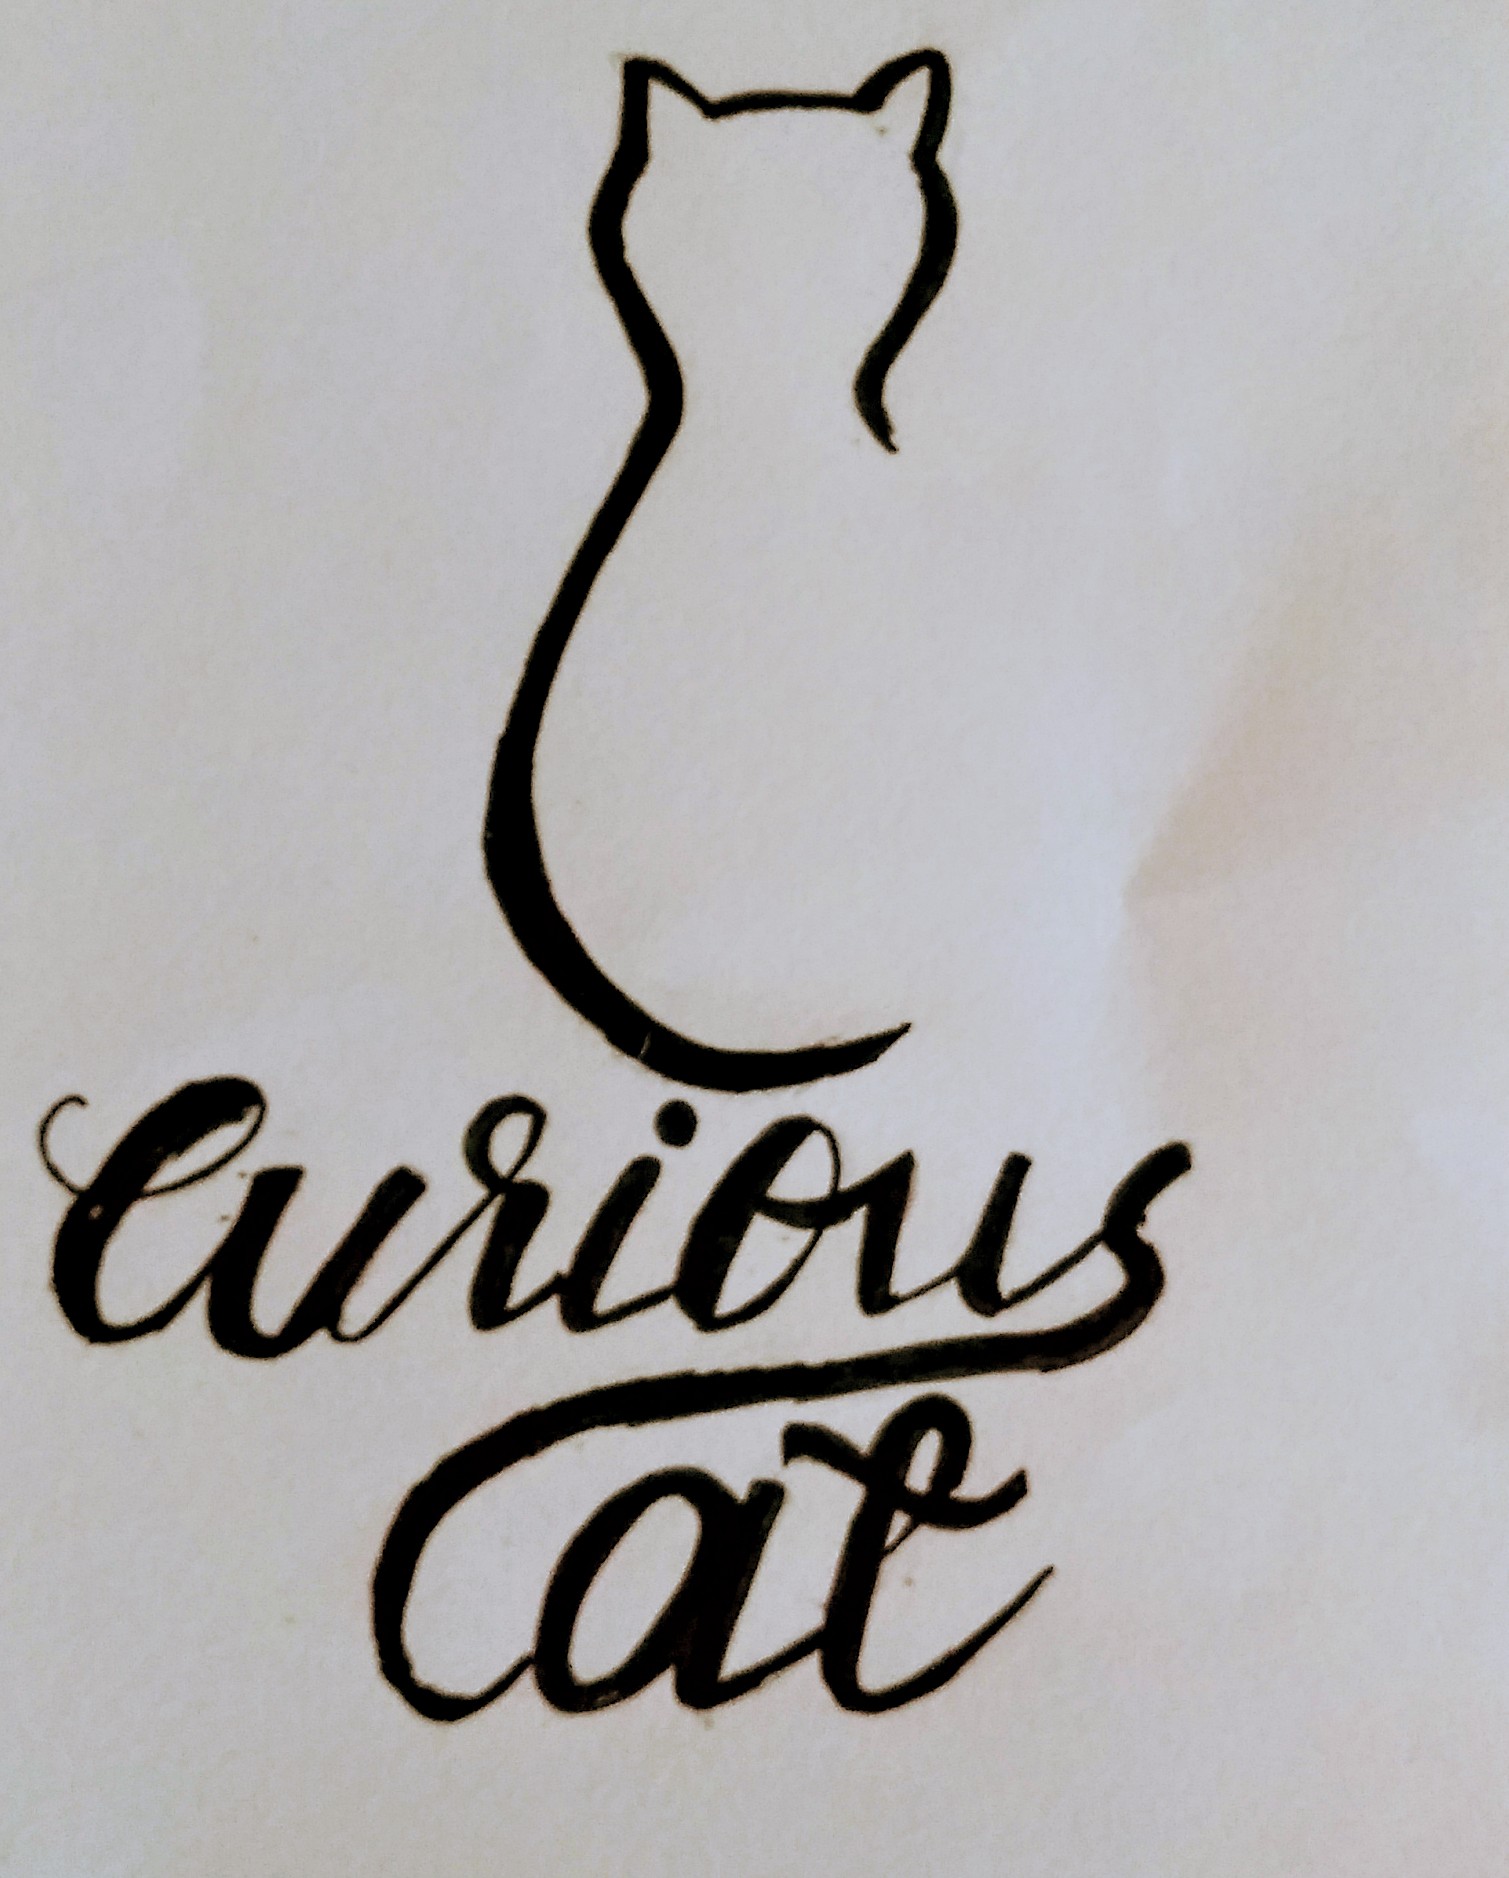 Curious
Cat